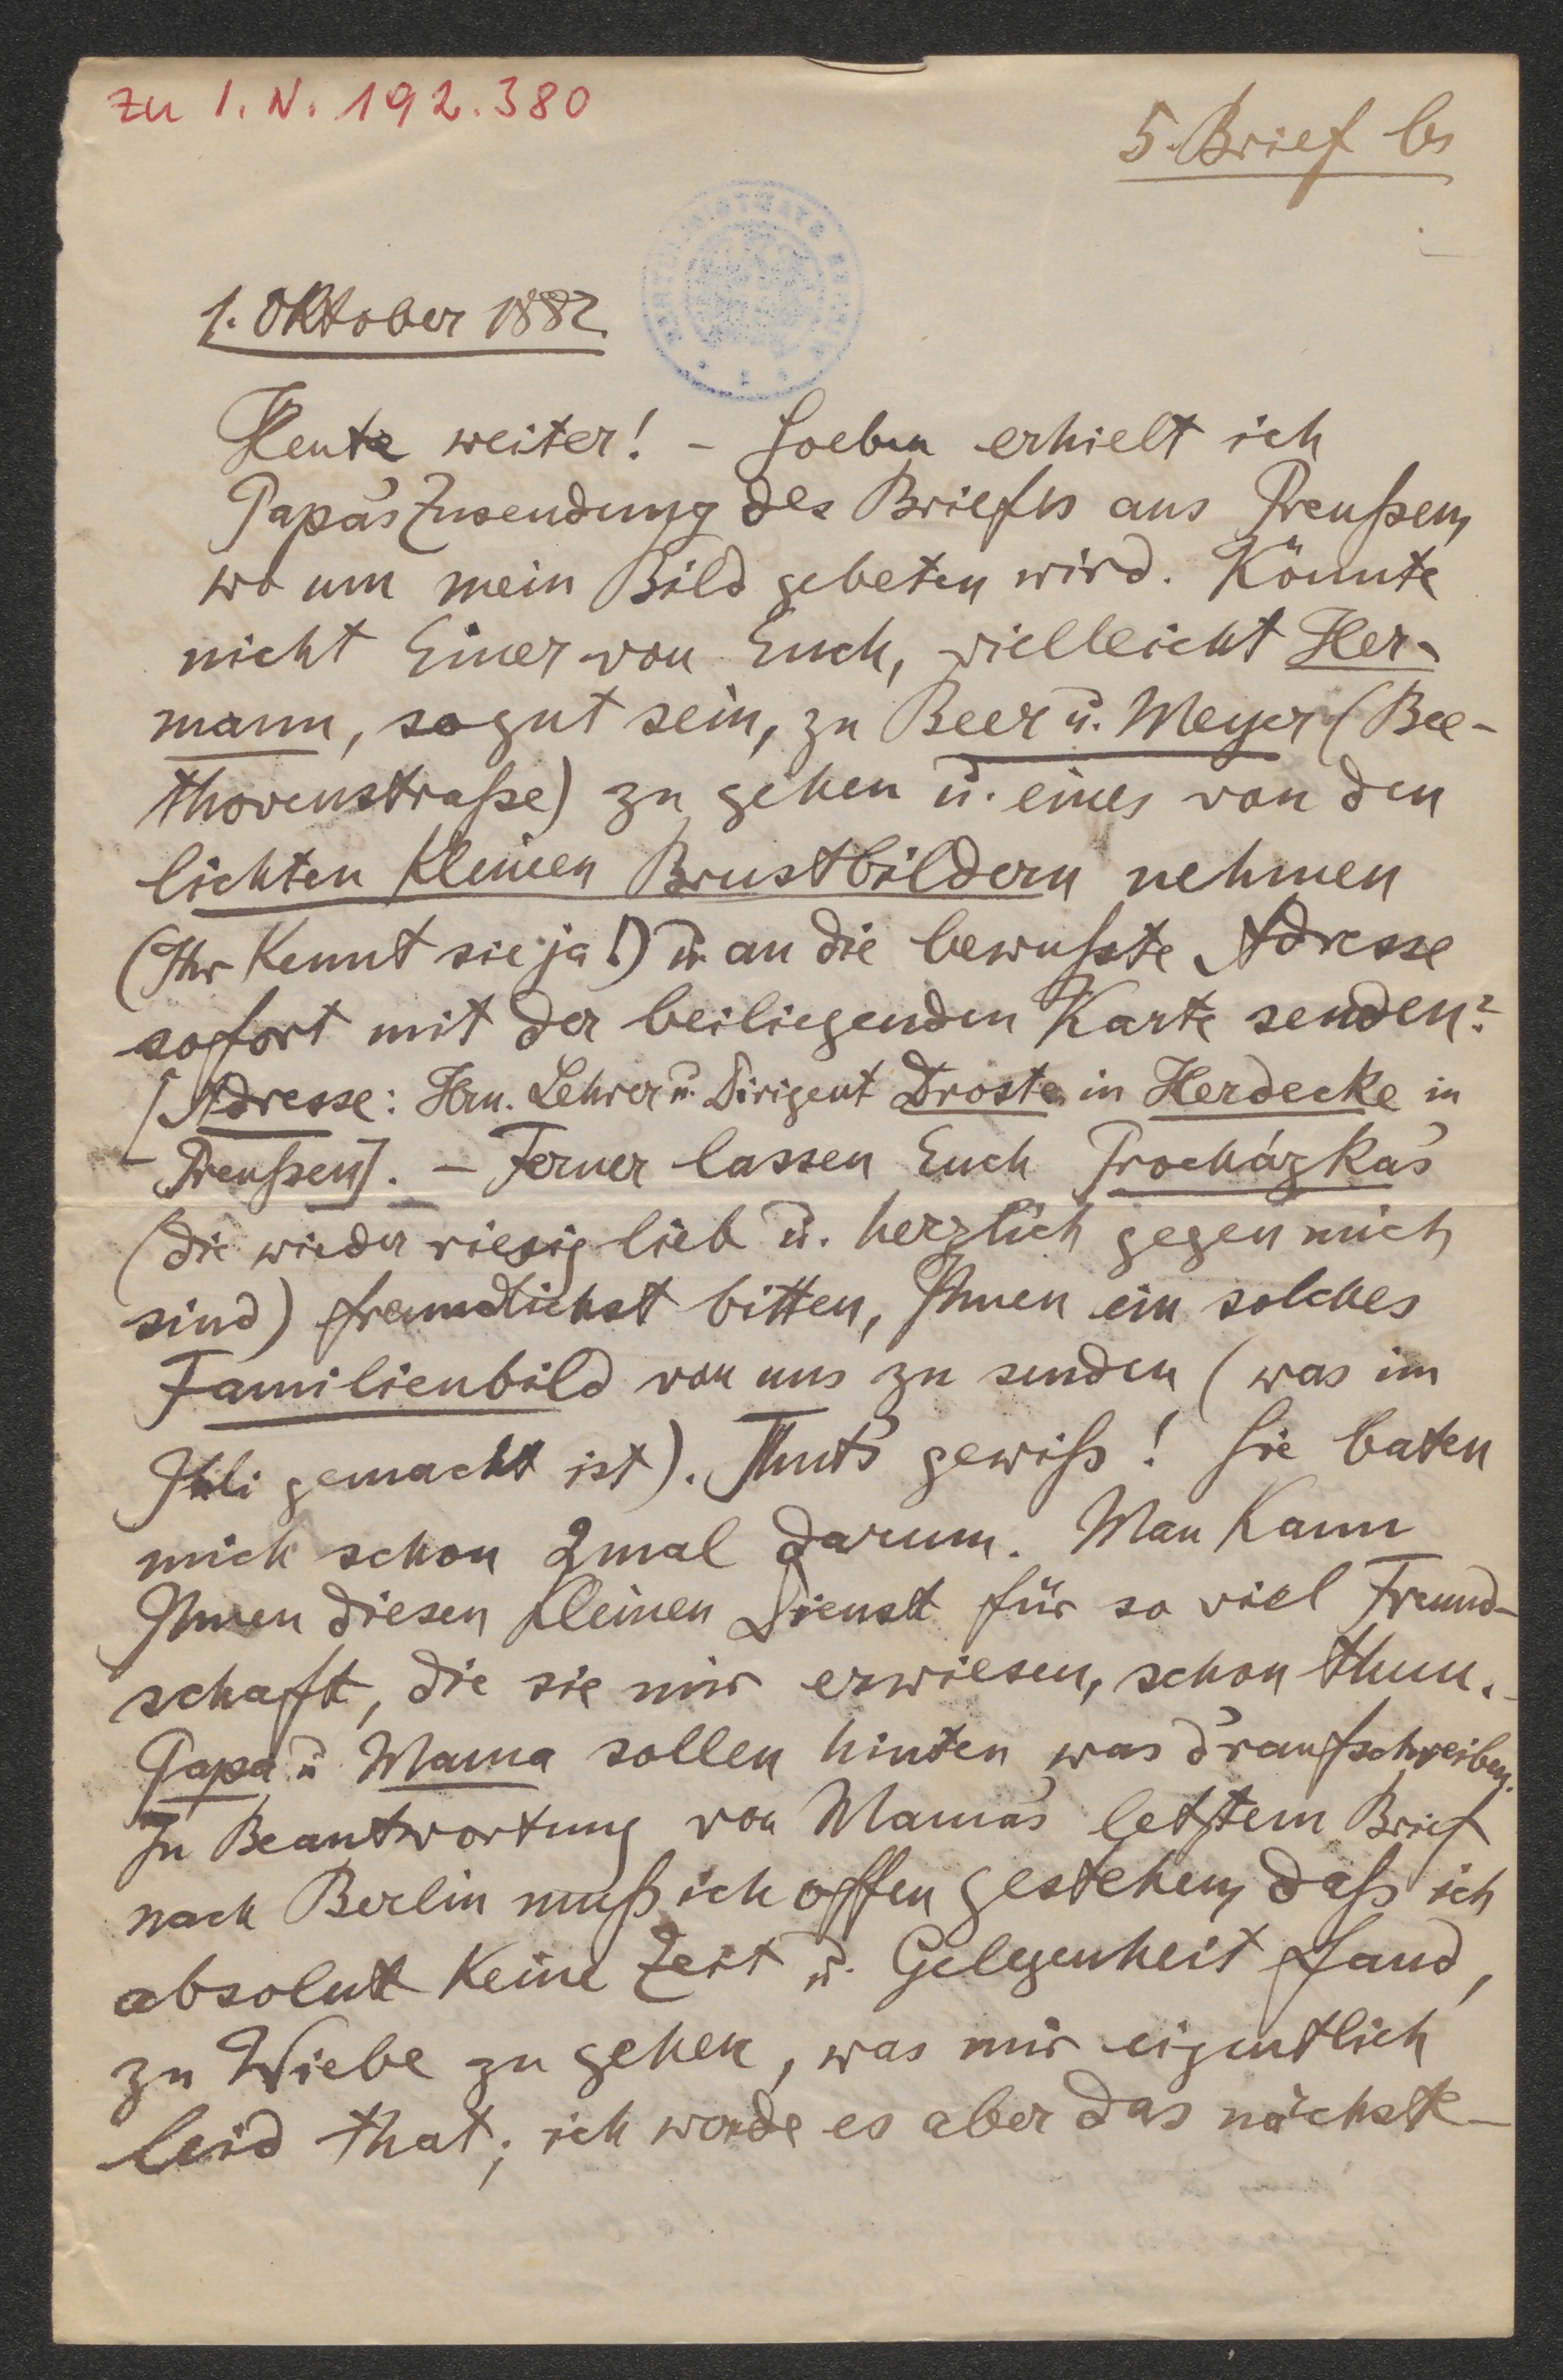 zu I. N. 192.380
5. Brief b
1. Oktober 1882
Heute weiter! – Soeben erhielt ich
Papa's Zusendung des Briefes aus Preußen,
wo um mein Bild gebeten wird. Könnte
nicht Einer von Euch, vielleicht Her-
mann, so gut sein, zu Beer u. Meyer (Bee-
thovenstraße) zu gehen u. eines von den
lichten kleinen Brustbildern nehmen
(Ihr kennt sie ja!) u. an die bewußte Adresse
sofort mit der beiliegenden Karte senden?
[Adresse: Hrn. Lehrer u. Dirigent Droste in Herdecke in
Preußen]. – Ferner lassen Euch Procházka's
(die wieder riesig lieb u. herzlich gegen mich
sind) freundlichst bitten, Ihnen ein solches
Familienbild von uns zu senden (was im
Ischli gemacht ist). Thut's gewiß! Sie baten
mich schon 2mal darum. Man kann
Ihnen diesen kleinen Dienst für so viel Freund-
schaft, die sie mir erwiesen, schon thun. –
Papa u Mama sollen hinten was d'raufschreiben.
In Beantwortung von Mama's letztem Brief
nach Berlin muß ich offen gestehen, daß ich
absolut keine Zeit u. Gelegenheit fand,
zu Wiebe zu gehen, was mir eigentlich
leid that; ich werde es aber das nächste-